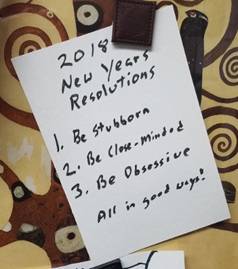 2018
New Years
Resolutions
1. Be Stubborn
2. Be Close-Minded
3. Be Obsessive
All in good ways!